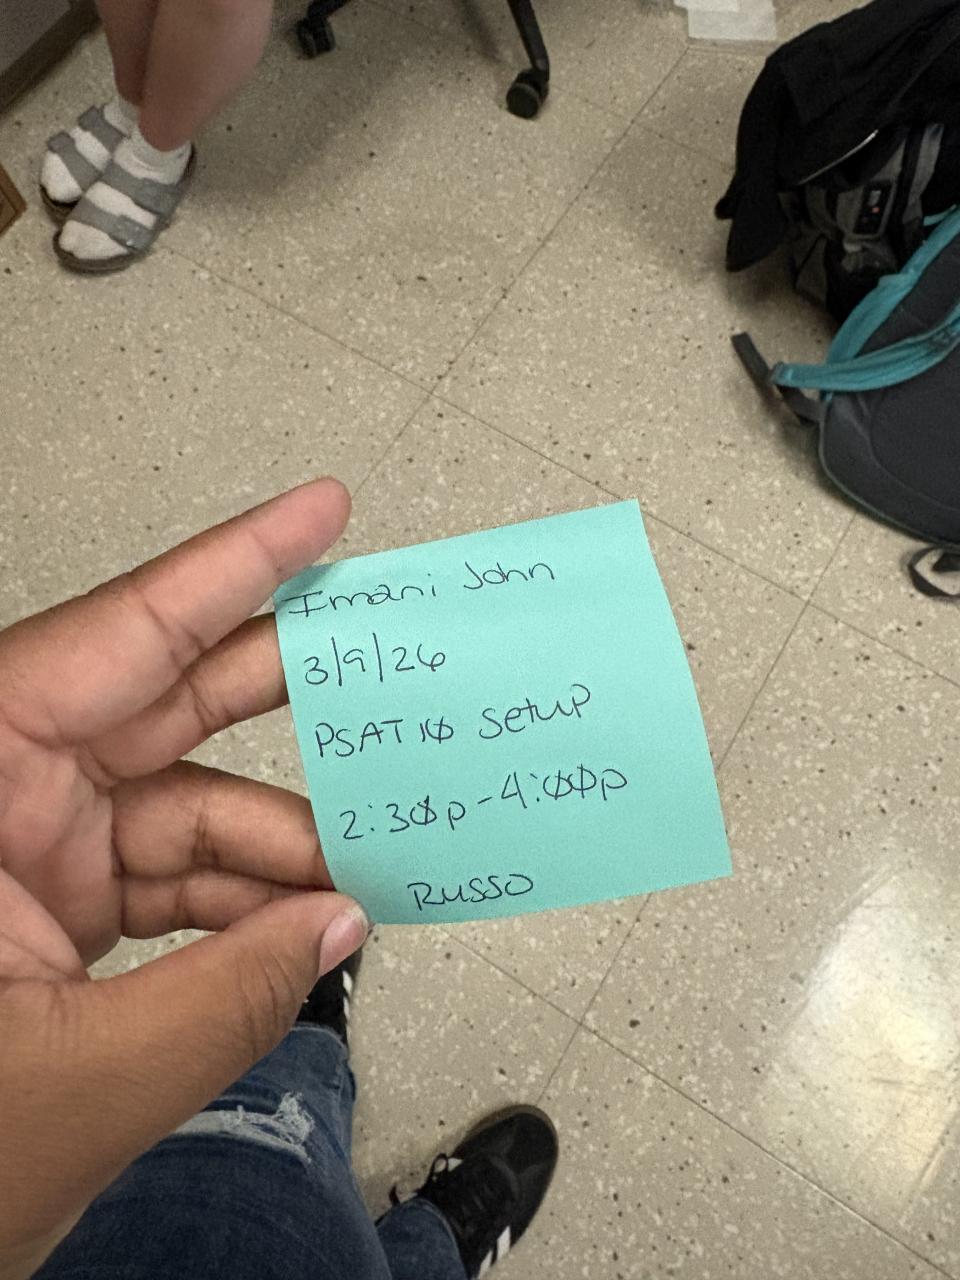 Imani John
3/9/26
PSAT 10 Setup
2:30p-4:00p
Russo